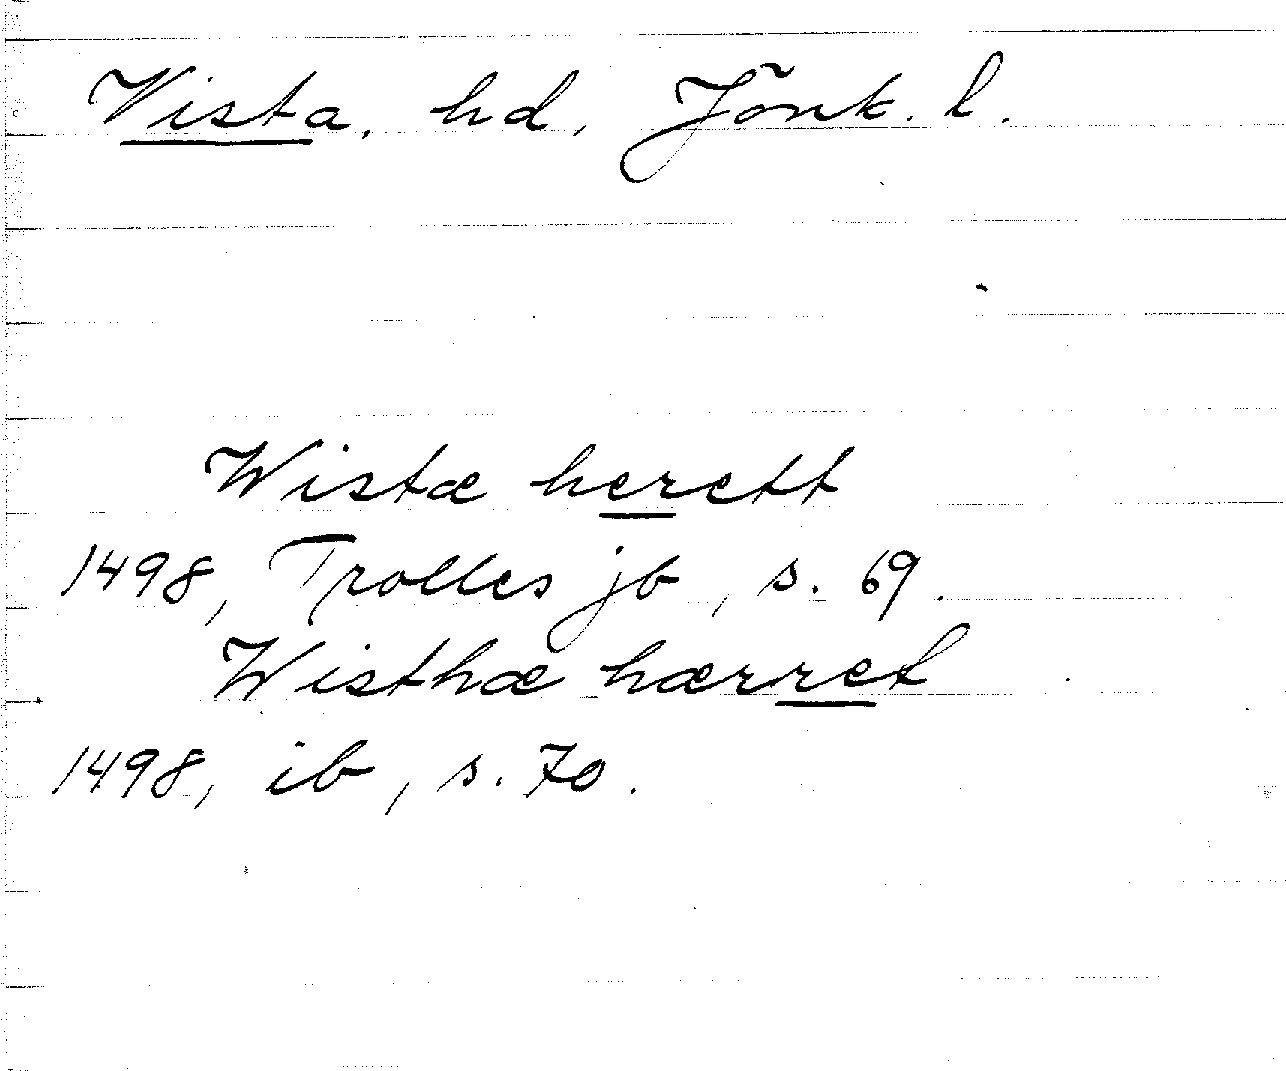 Vista, hd, Jönk. l.
Wistæ herett
1498, Trolles jb, s. 69.
Wisthæ hærret
1498, ib, s. 70.